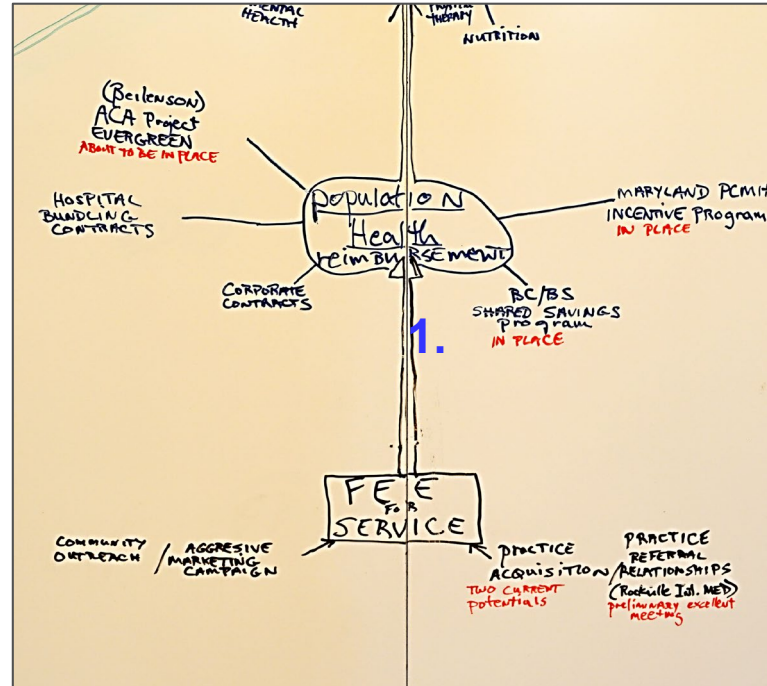 MENTAL
HEALTH
PHYSICAL
THERAPY
NUTRITION
(Beilenson)
ACA Project
EVERGREEN
ABOUT TO BE IN PLACE
HOSPITAL
BUNDLING
CONTRACTS
population
Health
reimbursement
MARYLAND PCMH
INCENTIVE Program
IN PLACE
CORPORATE
CONTRACTS
BC/BS
SHARED SAVINGS
program
IN PLACE
1.
FEE
FOR
SERVICE
COMMUNITY
OUTREACH /
AGGRESIVE
MARKETING
CAMPAIGN
PRACTICE
ACQUISITION /
TWO CURRENT
potentials
PRACTICE
REFERRAL
RELATIONSHIPS
(Rockville Int. MED)
preliminary excellent
meeting